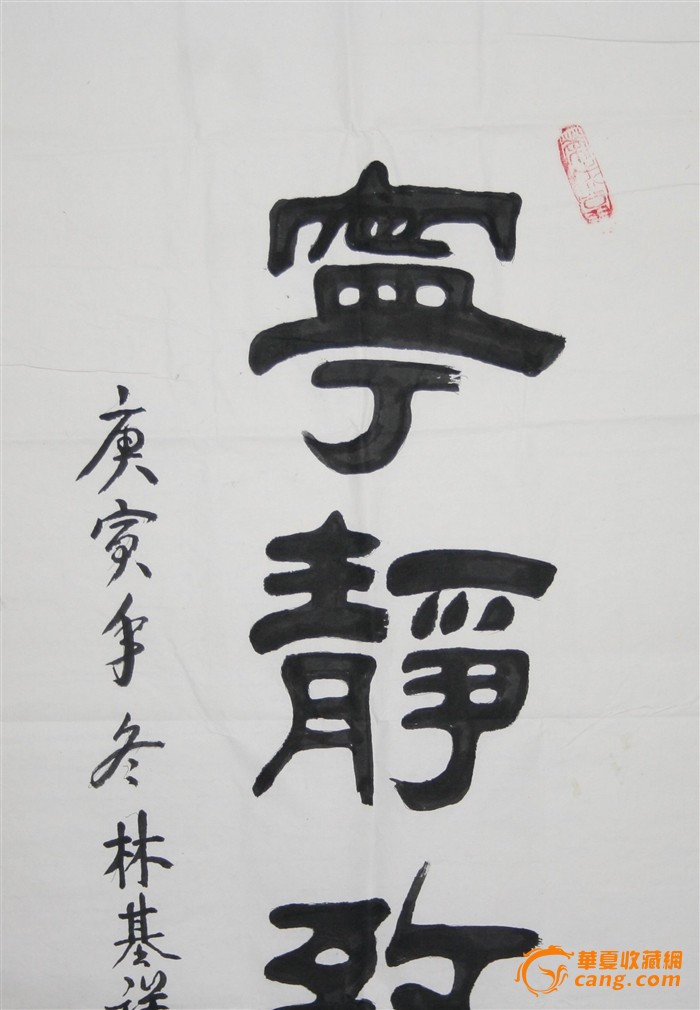 寧靜致
庚寅年冬林基祥
華夏收藏網
cang.com